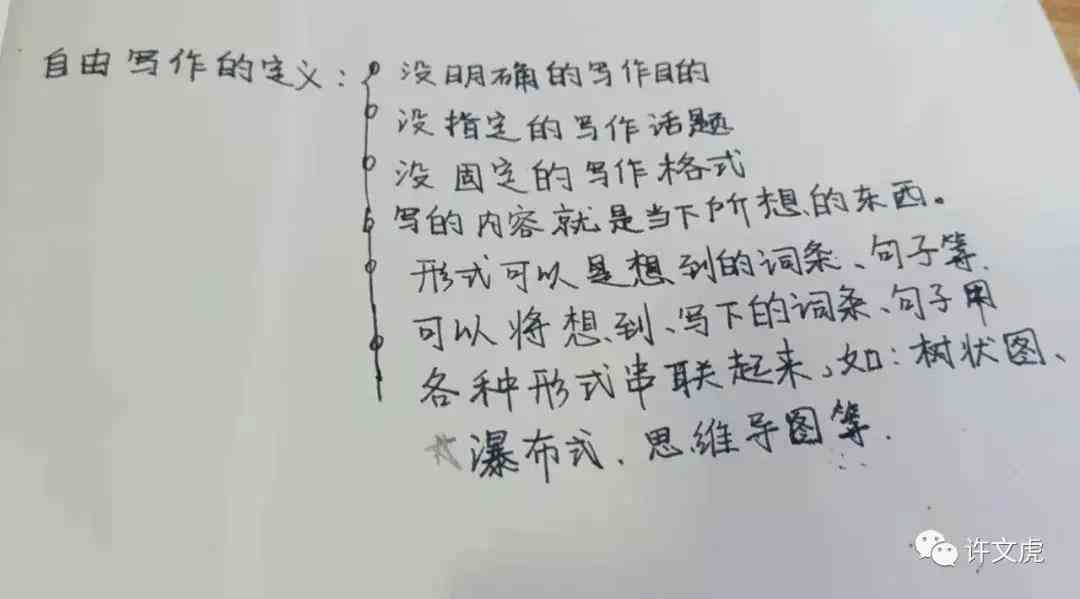 自由写作的定义：没明确的写作目的
没指定的写作话题
没固定的写作格式
写的内容就是当下所想的东西。
形式可以是想到的词条、句子等.
可以将想到、写下的词条、句子用
各种形式串联起来，如：树状图、
瀑布式、思维导图等.
许文虎